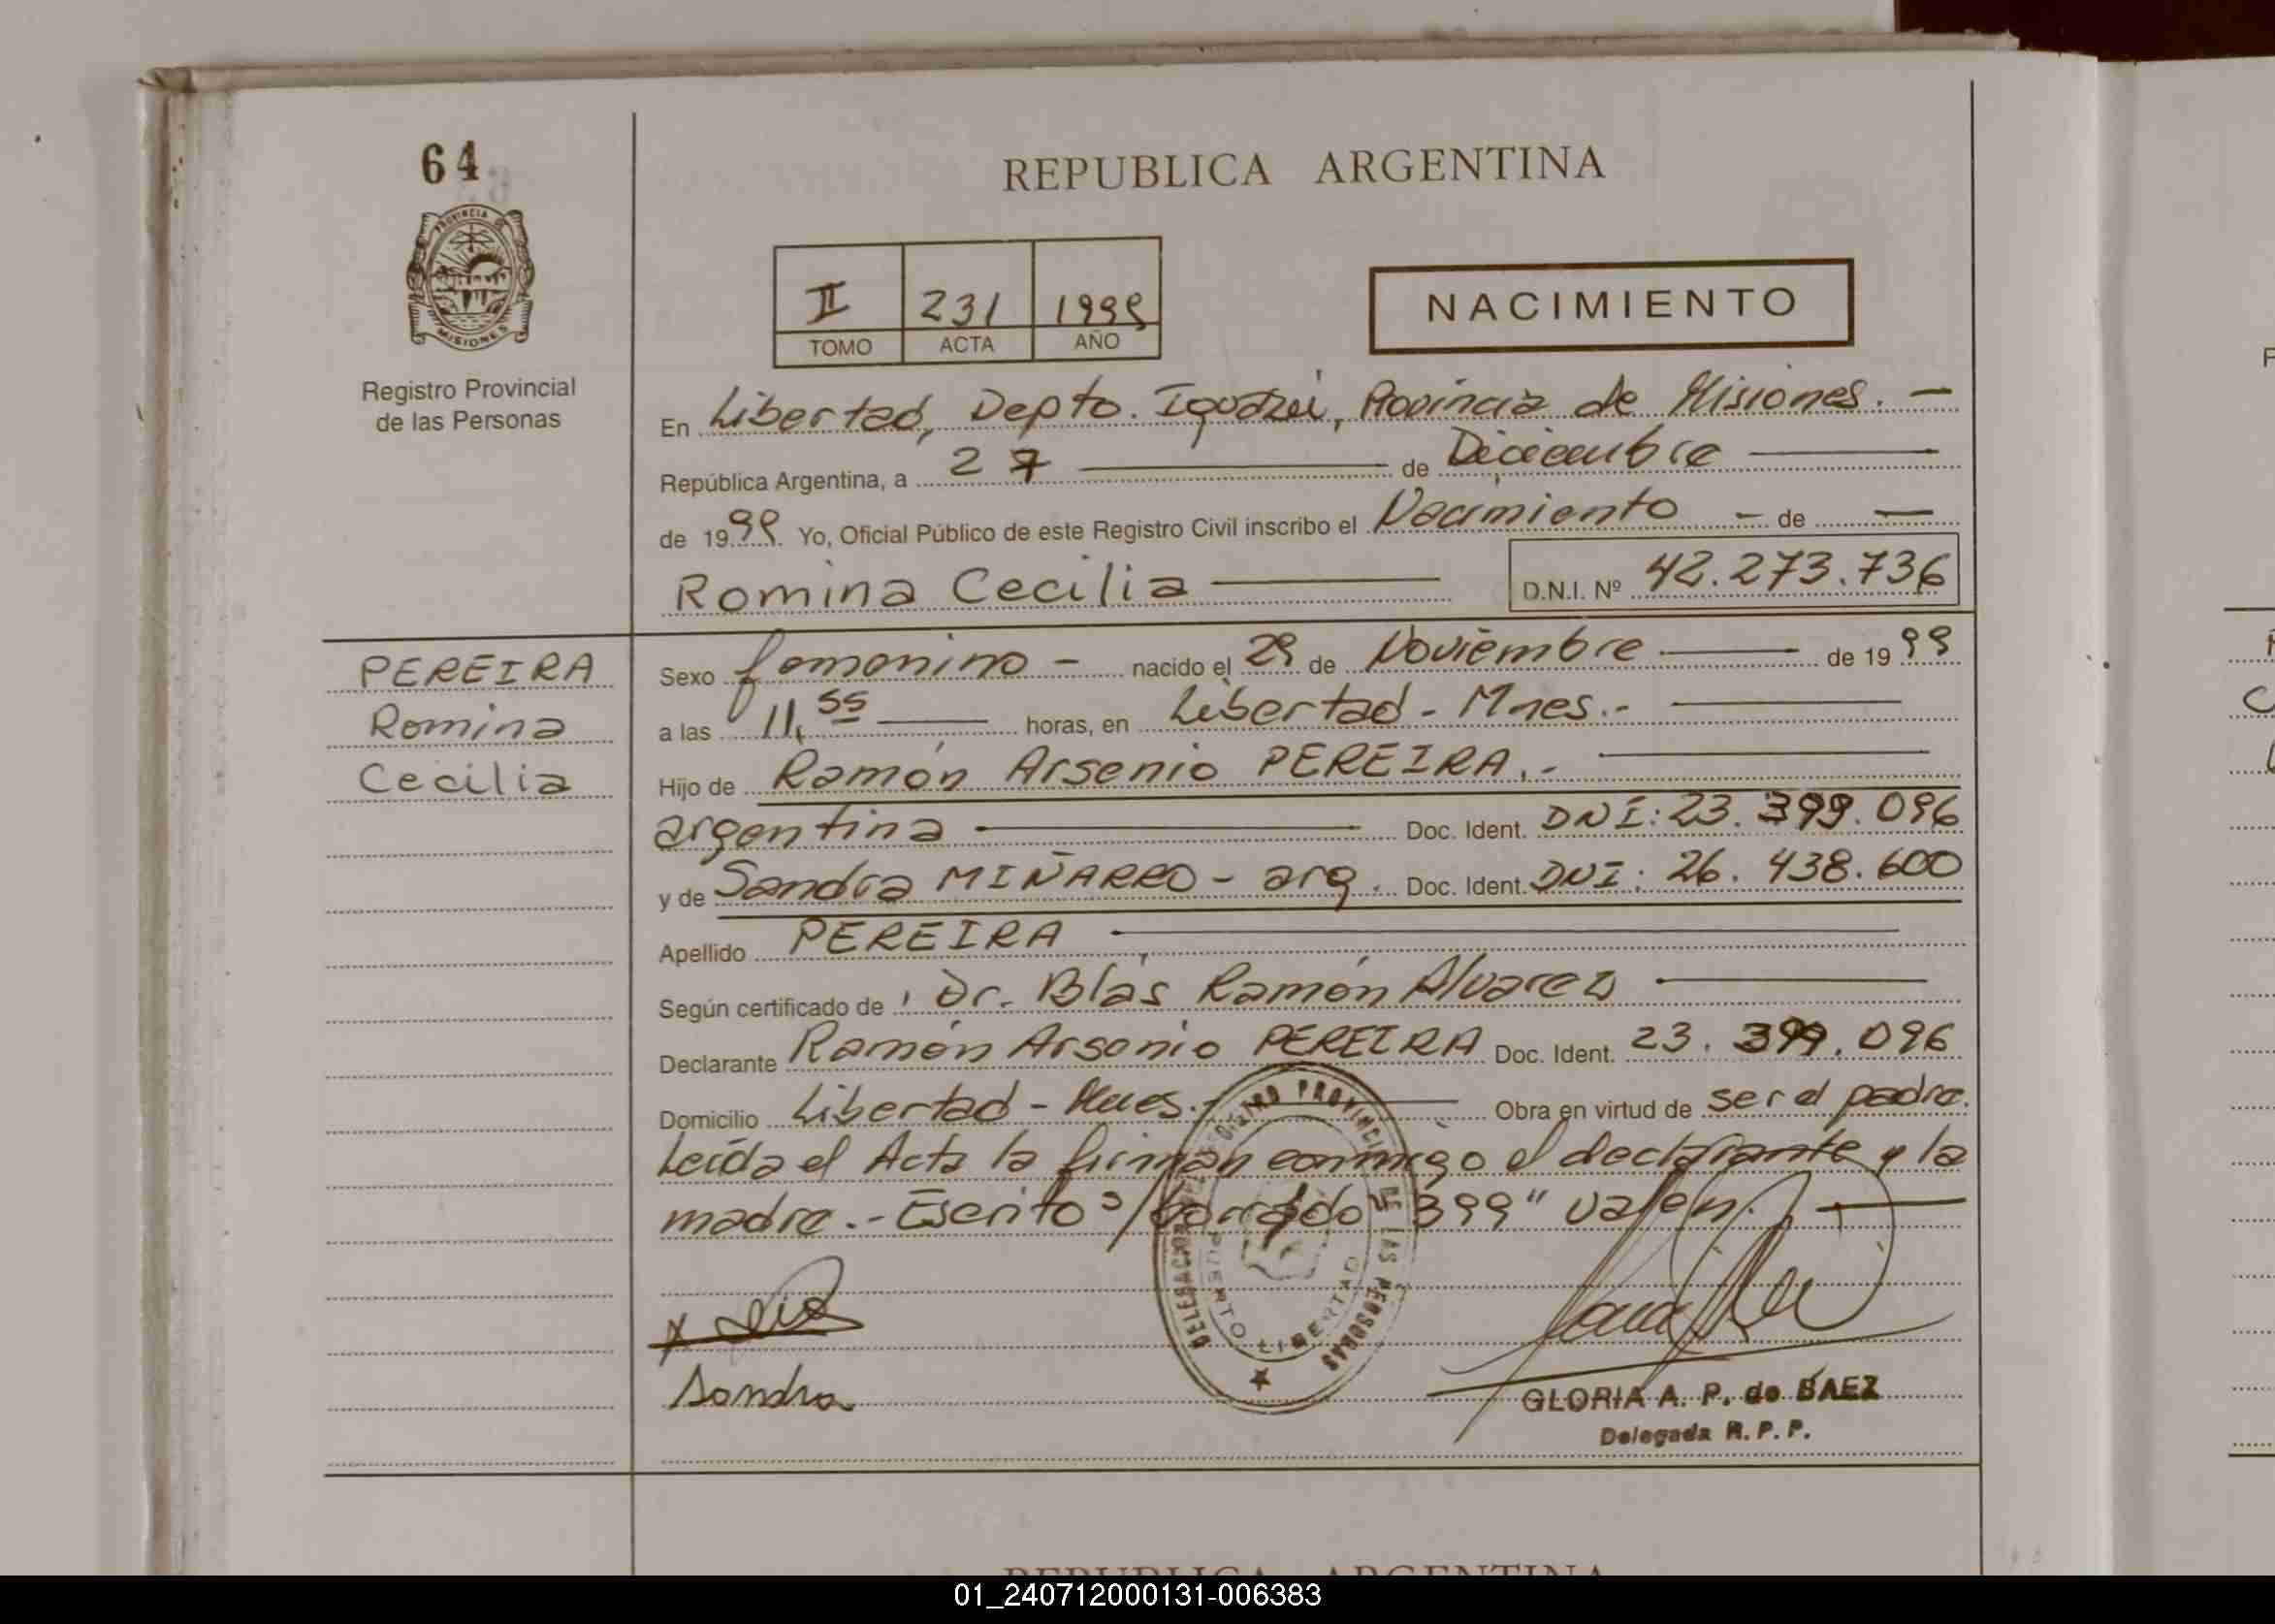 64
REPUBLICA ARGENTINA
PROVINCIA DE
MISIONES
Registro Provincial
de las Personas
II 231 1999
TOMO ACTA AÑO
NACIMIENTO
En Libertad, Depto. Iguazú, Provincia de Misiones. -
República Argentina, a 27 de Diciembre
de 1999. Yo, Oficial Público de este Registro Civil inscribo el Nacimiento - de -
Romina Cecilia D.N.I. Nº 42.273.736
PEREIRA
Romina
Cecilia
Sexo femenino - nacido el 29 de Noviembre de 1999
a las 11,55 horas, en Libertad - Mnes.-
Hijo de Ramón Arsenio PEREIRA.-
argentina Doc. Ident. DNI: 23.399.096
y de Sandra MIÑARRO - arg. Doc. Ident. DNI: 26.438.600
Apellido PEREIRA
Según certificado de Dr. Blás Ramón Alvarez
Declarante Ramón Arsenio PEREIRA Doc. Ident. 23.399.096
Domicilio Libertad - Mnes.- Obra en virtud de ser el padre.
Leída el Acta la firman conmigo el declarante y la
madre.- Escrito s/borrado "399" valen.
DELEGACION REGISTRO PROVINCIAL DE LAS PERSONAS
PUERTO LIBERTAD
Sandra
GLORIA A. P. de BAEZ
Delegada R. P. P.
REPUBLICA ARGENTINA
01_240712000131-006383